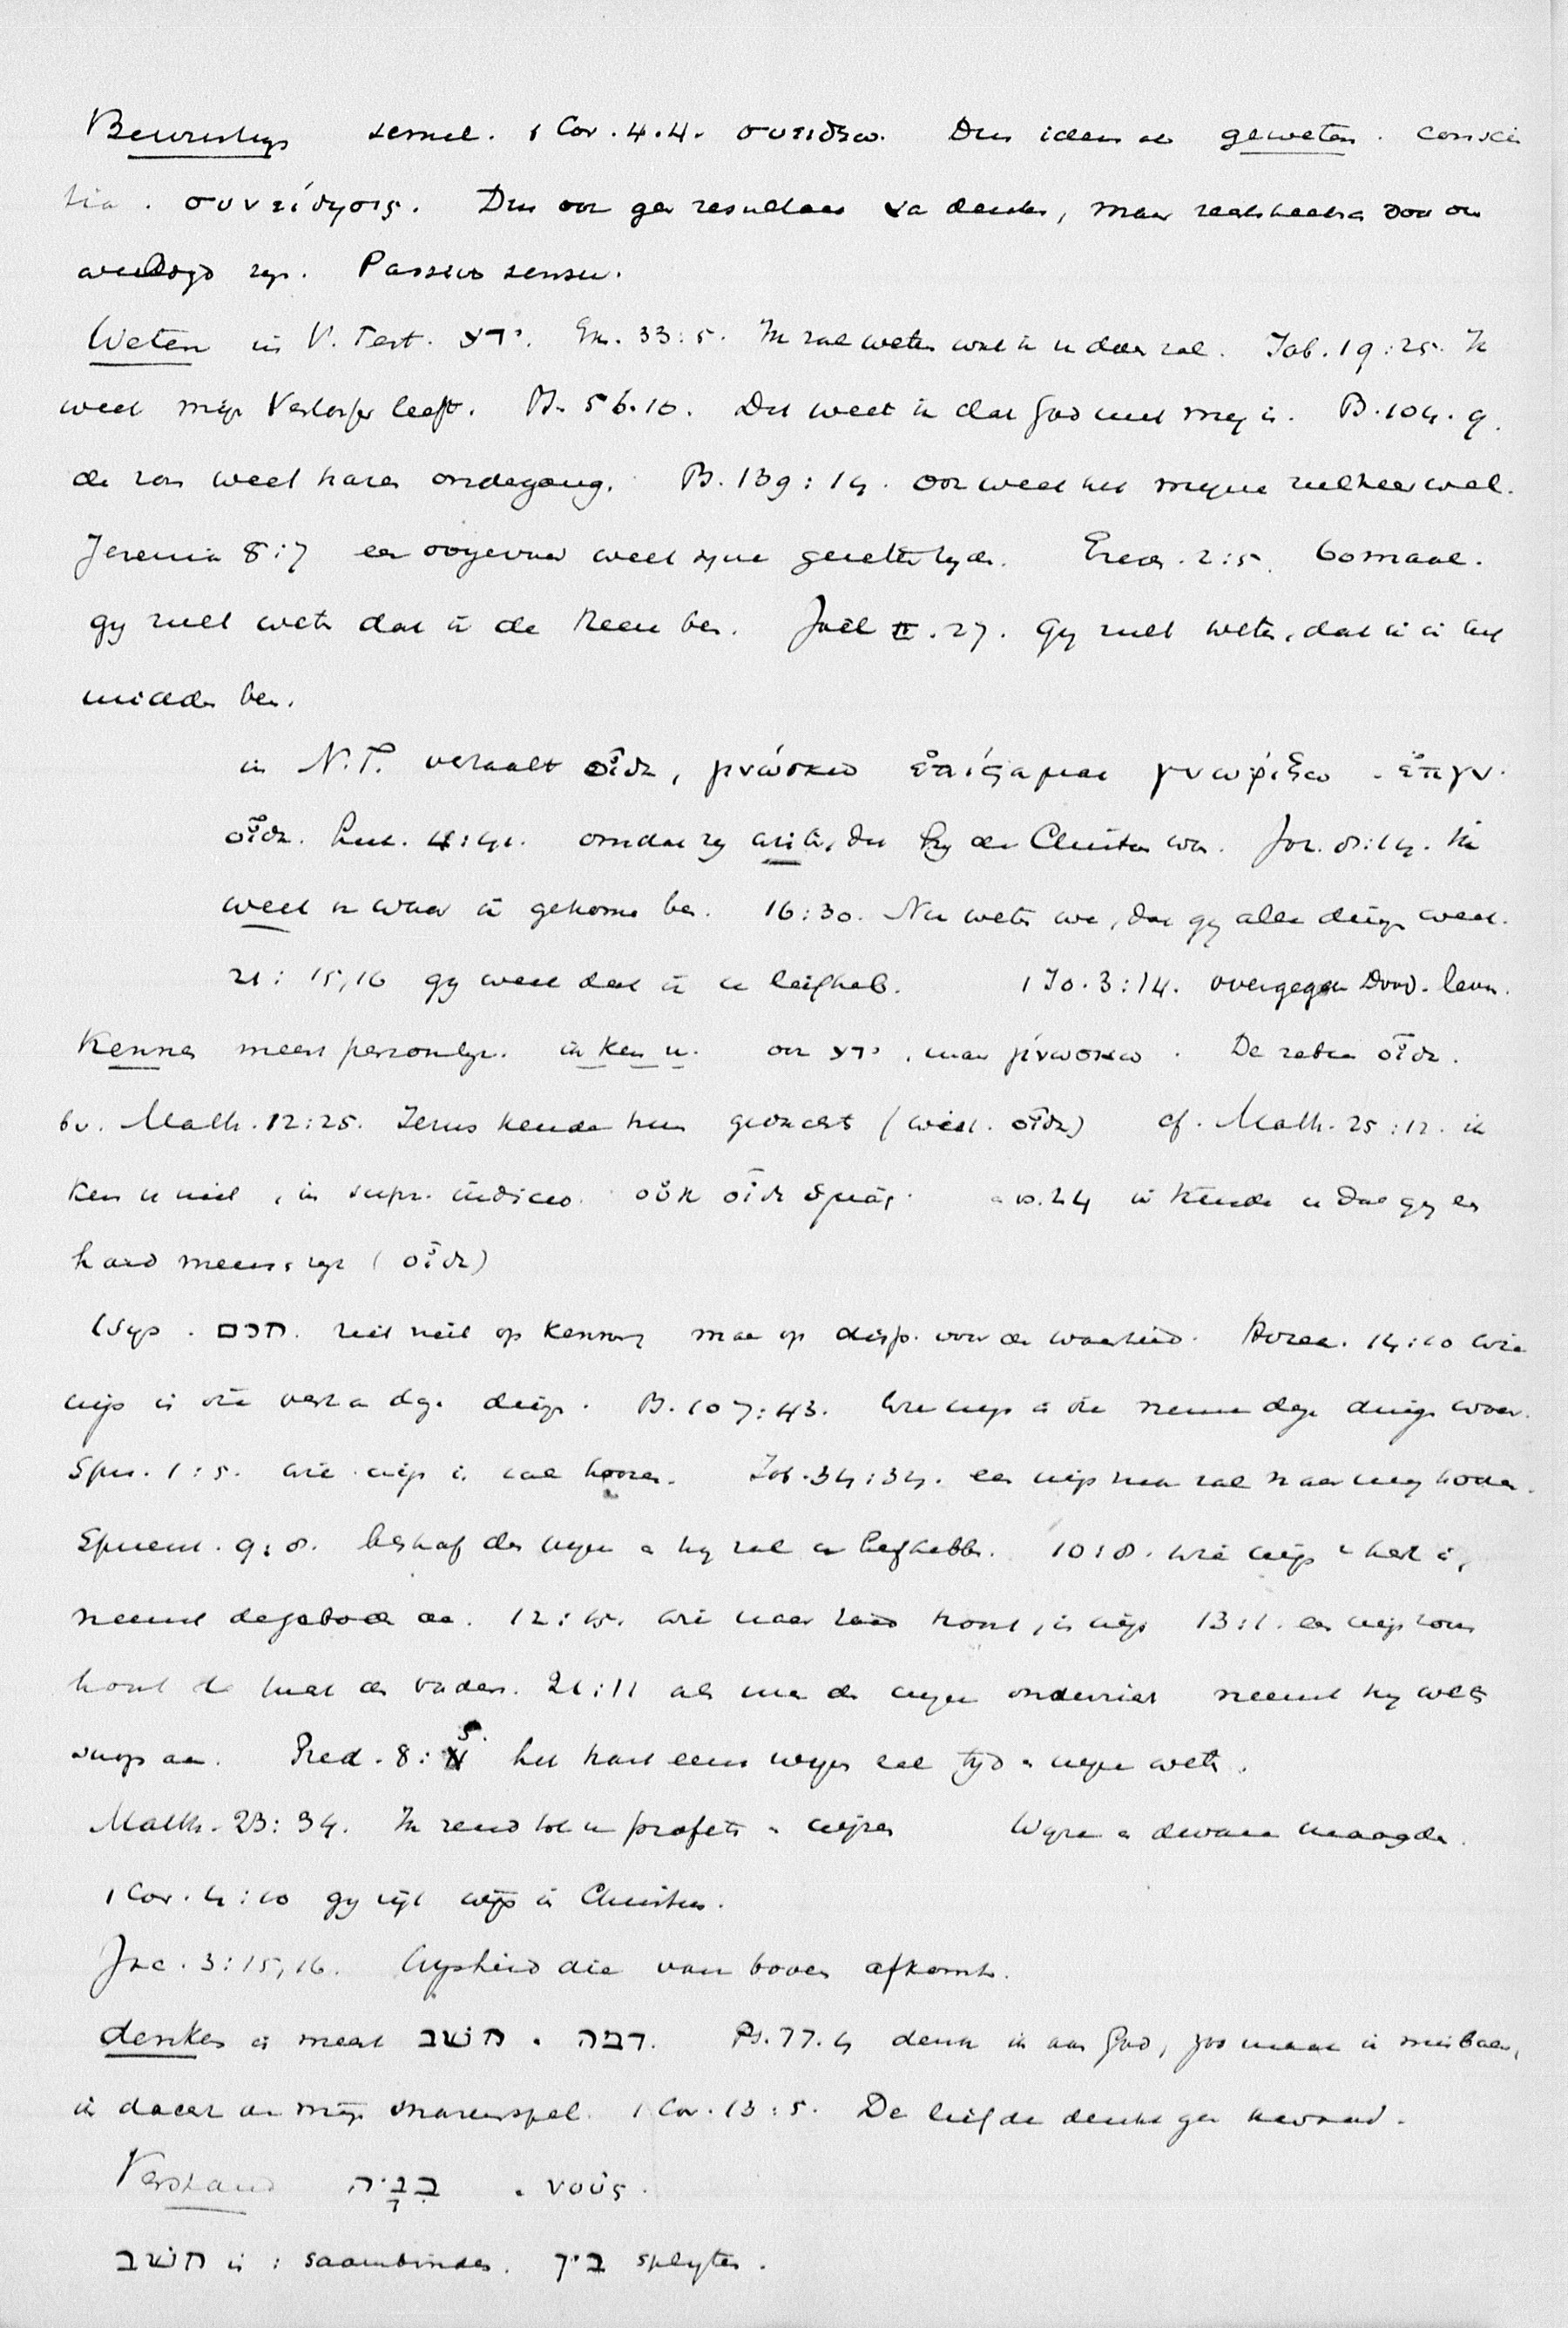 Bewustzijn semel. 1 Cor. 4.4. συνειδεω. Dus idem als geweten. conscien
tia. συνείδησις. Dus ook geen resultaat van denken, maar rechtstreeks door ons
Passivo sensu.
Weten in V. Test. ידע. Ex. 33:5. Ik zal weten wat ik u doen zal. Job. 19:25. Ik
weet mijn Verlosser leeft. Ps. 56.10. Dit weet ik dat God met mij is. Ps. 104.9.
de zon weet haren ondergang. Ps. 139:14. ook weet het mijne ziel zeer wel.
Jeremia 8:7 een ooyevaar weet zijne gezette tyden. Ezech. 2:5. 60 maal.
gy zult weten dat ik de Heere ben. Joël II.27. Gy zult weten, dat ik in het
midden ben.
in N.T. vertaalt οἶδα, γινώσκω ἐπίσταμαι γνωρίζω. ἐπιγν.
οἶδα. Luc. 4:41. omdat zy wisten, dat hy de Christus was. Joh. 8:14. Ik
weet van waar ik gekomen ben. 16:30. Nu weten we, dat gy alle dingen weet.
21:15,16 gy weet dat ik u liefheb. 1 Jo. 3:14. overgegaan Dood. leven.
Kennen meest persoonlijk. ik ken u. ook ידע, maar γίνωσκω. De zaken οἶδα.
bv. Matth. 12:25. Jezus kende hun gedachten (wist. οἶδα) cf. Matth. 25:12. ik
ken u niet, in οὐκ οἶδα ὑμᾶς. vs. 24 ik kende u dat gy een
hard mensch zyt (οἶδα)
Wys. חכם. ziet niet op kennis maar op disp. voor de waarheid. Hozea. 14:10 wie
wijs is die versta deze dingen. Ps. 107:43. Wie wijs is die neme deze dingen waar.
Spr. 1:5. wie wijs is zal hooren. Job. 34:34. een wijs man zal naar mij hooren.
Spreuk. 9:8. bestraf den wijze en hy zal u liefhebben. 10:8. wie wijs van hart is,
neemt de geboden aan. 12:15. wie naar raad hoort, is wijs 13:1. een wijs zoon
hoort de tucht des vaders. 21:11 als men den wijze onderricht neemt hy weten
schap aan. Pred. 8:5. het hart eens wyzen zal tyd en wijze weten.
Matth. 23:34. Ik zend tot u profeten en wijzen Wyze en dwaze maagden.
1 Cor. 4:10 gy zijt wijs in Christus.
Jac. 3:15,16. Wysheid die van boven afkomt.
denken is meest חשב. דמה. Ps. 77.4 denk ik aan God, zoo maak ik misbaar,
ik dacht aan mijn snarenspel. 1 Cor. 13:5. De liefde denkt geen kwaad.
Verstand בינה. νοῦς.
חשב is: saambinden. בין splyten.